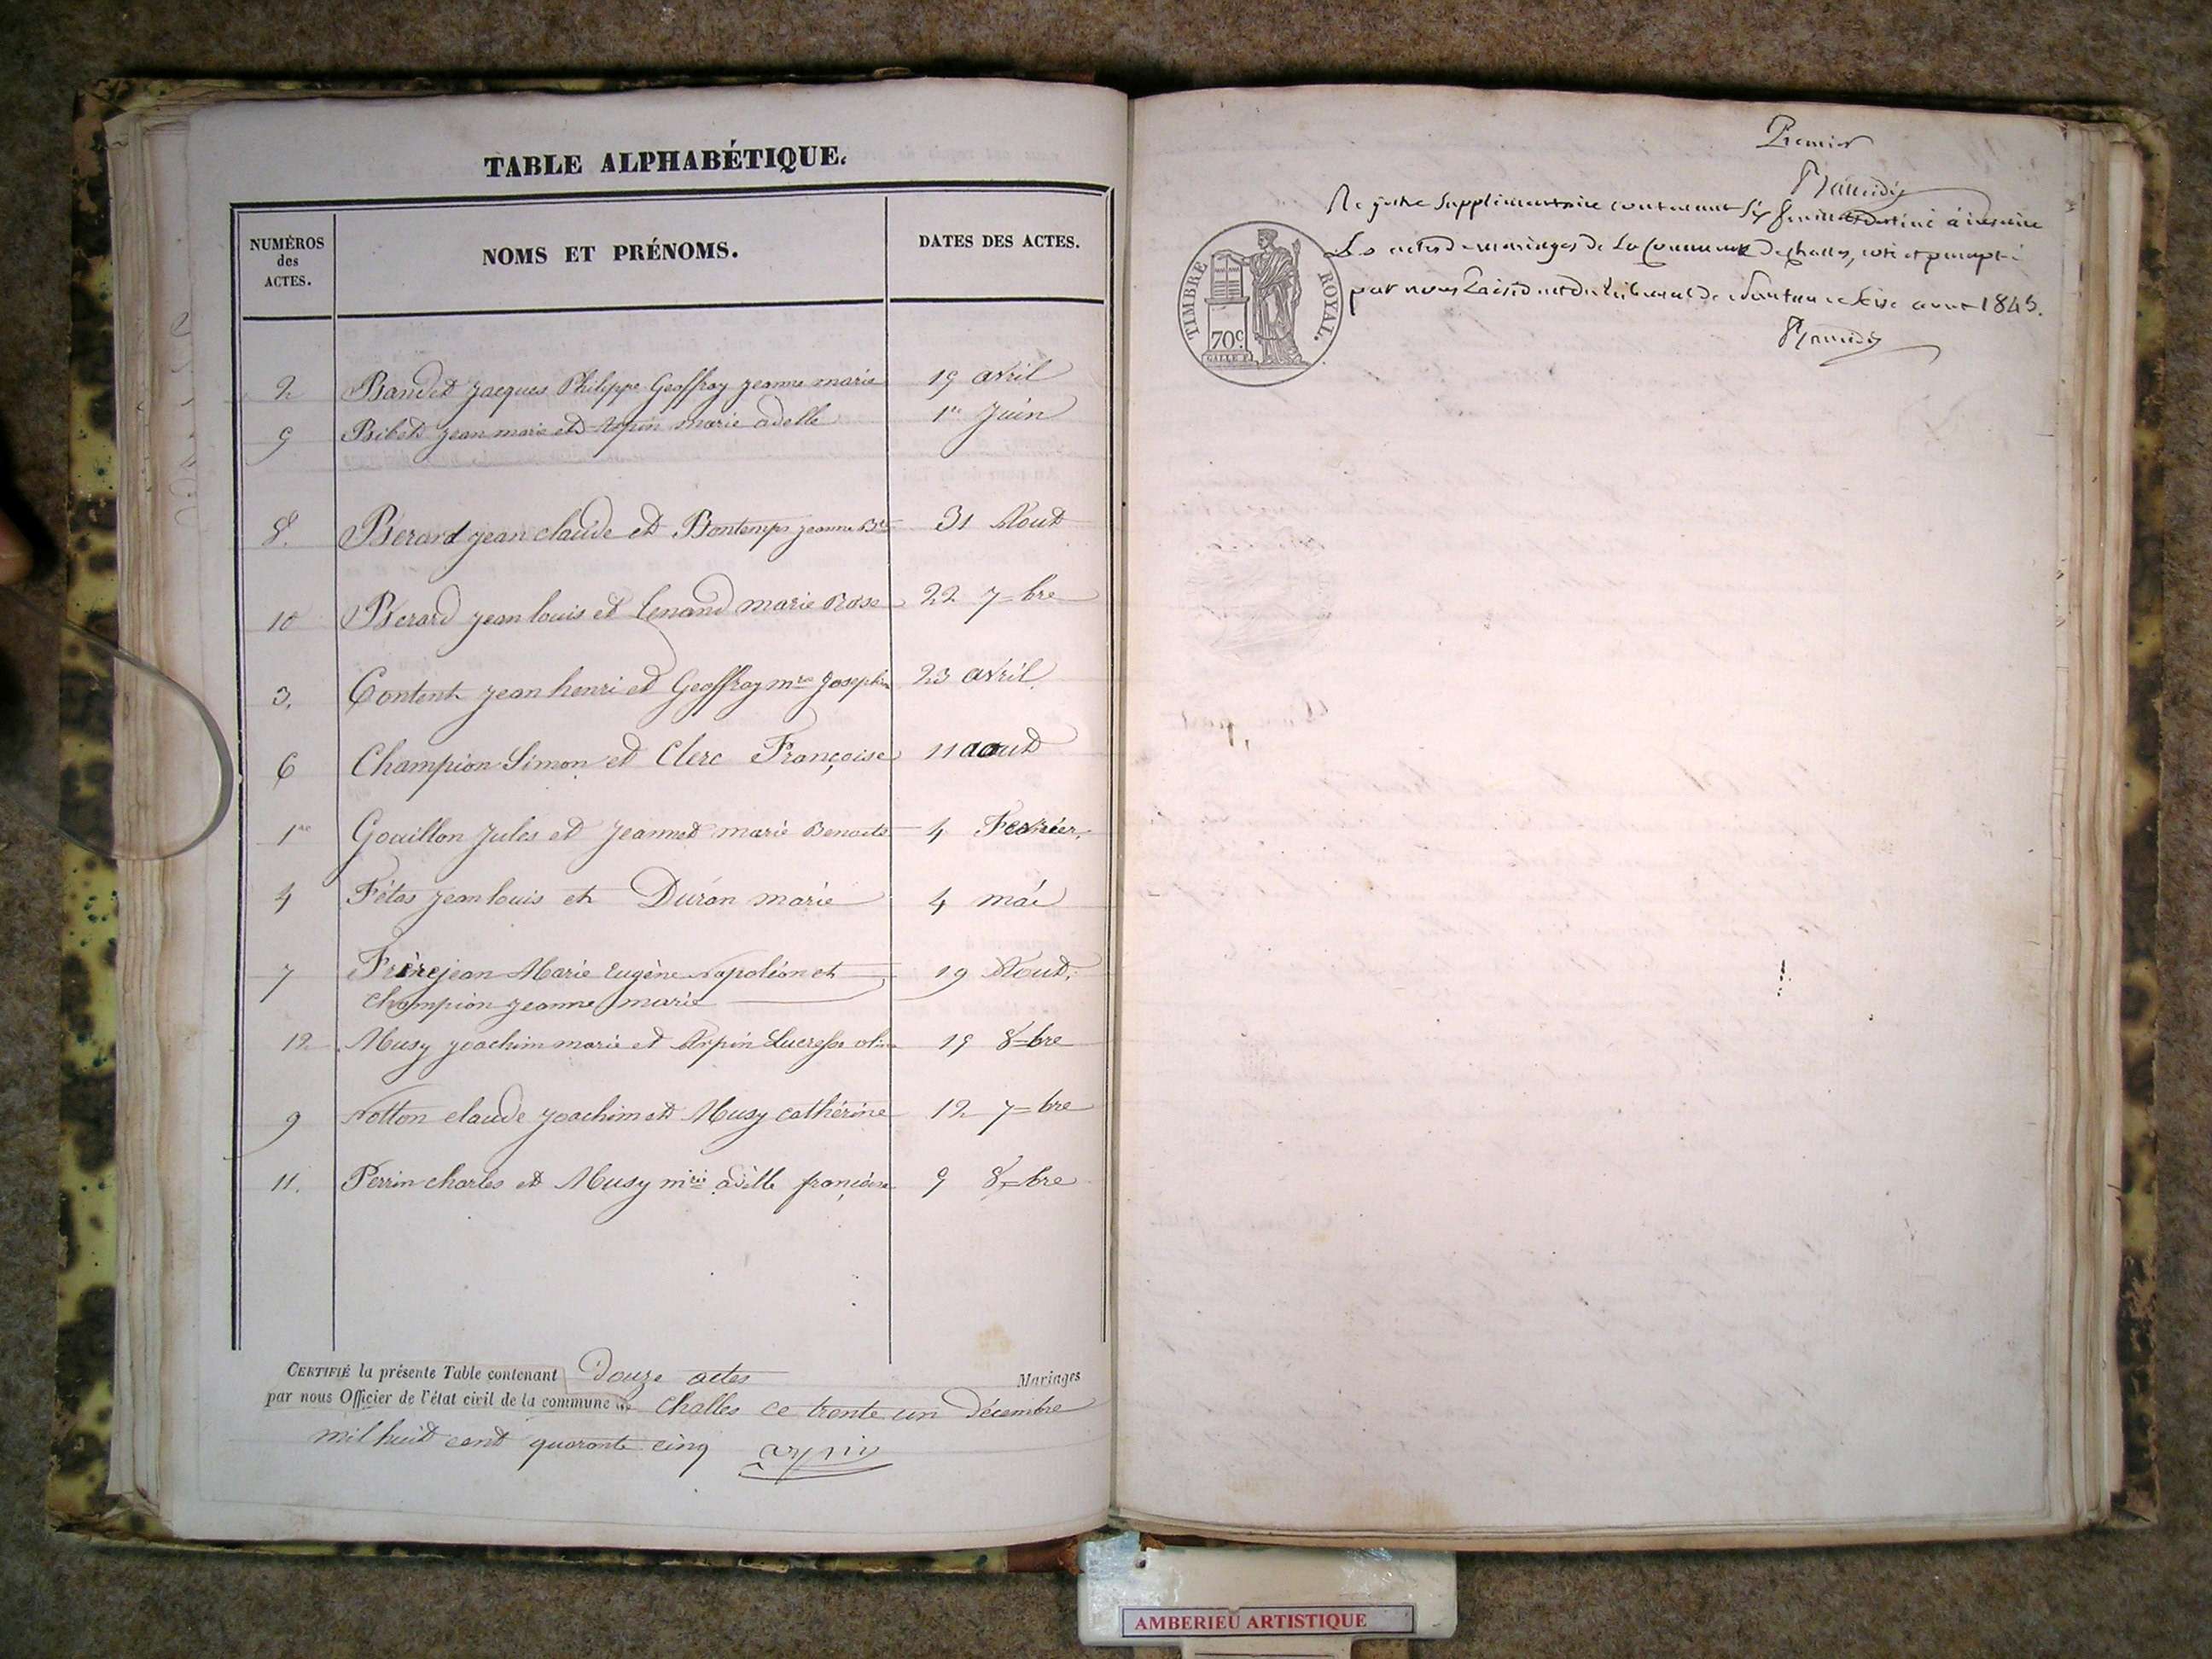 TABLE ALPHABÉTIQUE.
NUMÉROS
des
ACTES.
NOMS ET PRÉNOMS.
DATES DES ACTES.
2 Jacques Philippe Geoffray jeanne marie 19 avril
jean marie et Arpin marie adelle 1er Juin
8. Berard jean claude et Bontemps jeanne 31 Aout
10 Berard jean louis et marie Rose 22 7=bre
3. Content jean henri et Geoffray mie Josephine 23 avril
6 Champion Simon et Clerc Françoise 11 aout
1re Gouillon Jules et Jeannet marie Benoite 4 Fevrier.
4 Fétas jean louis et Duran marie 4 mai
7 Frèrejean Marie Eugène Napoléon et 19 Aout.
Champion jeanne marie
12 Musy joachim marie et Arpin 19 8=bre
9 Notton claude joachim et Musy cathérine 12 7=bre
11. Perrin charles et Musy mrie adélle françoise 9 8=bre
CERTIFIÉ la présente Table contenant Douze actes Mariages
par nous Officier de l'état civil de la commune de Challes ce trente un Décembre
mil huit cent quarante cinq arpin
Premier
Registre Supplimentaire contenant Six feuillets destiné à inscrire
Les actes de mariages de La Commune de Challes, coté et paraphé
par nous Président du tribunal de Nantua le seize aout 1845.
TIMBRE ROYAL.
70c.
AMBERIEU ARTISTIQUE